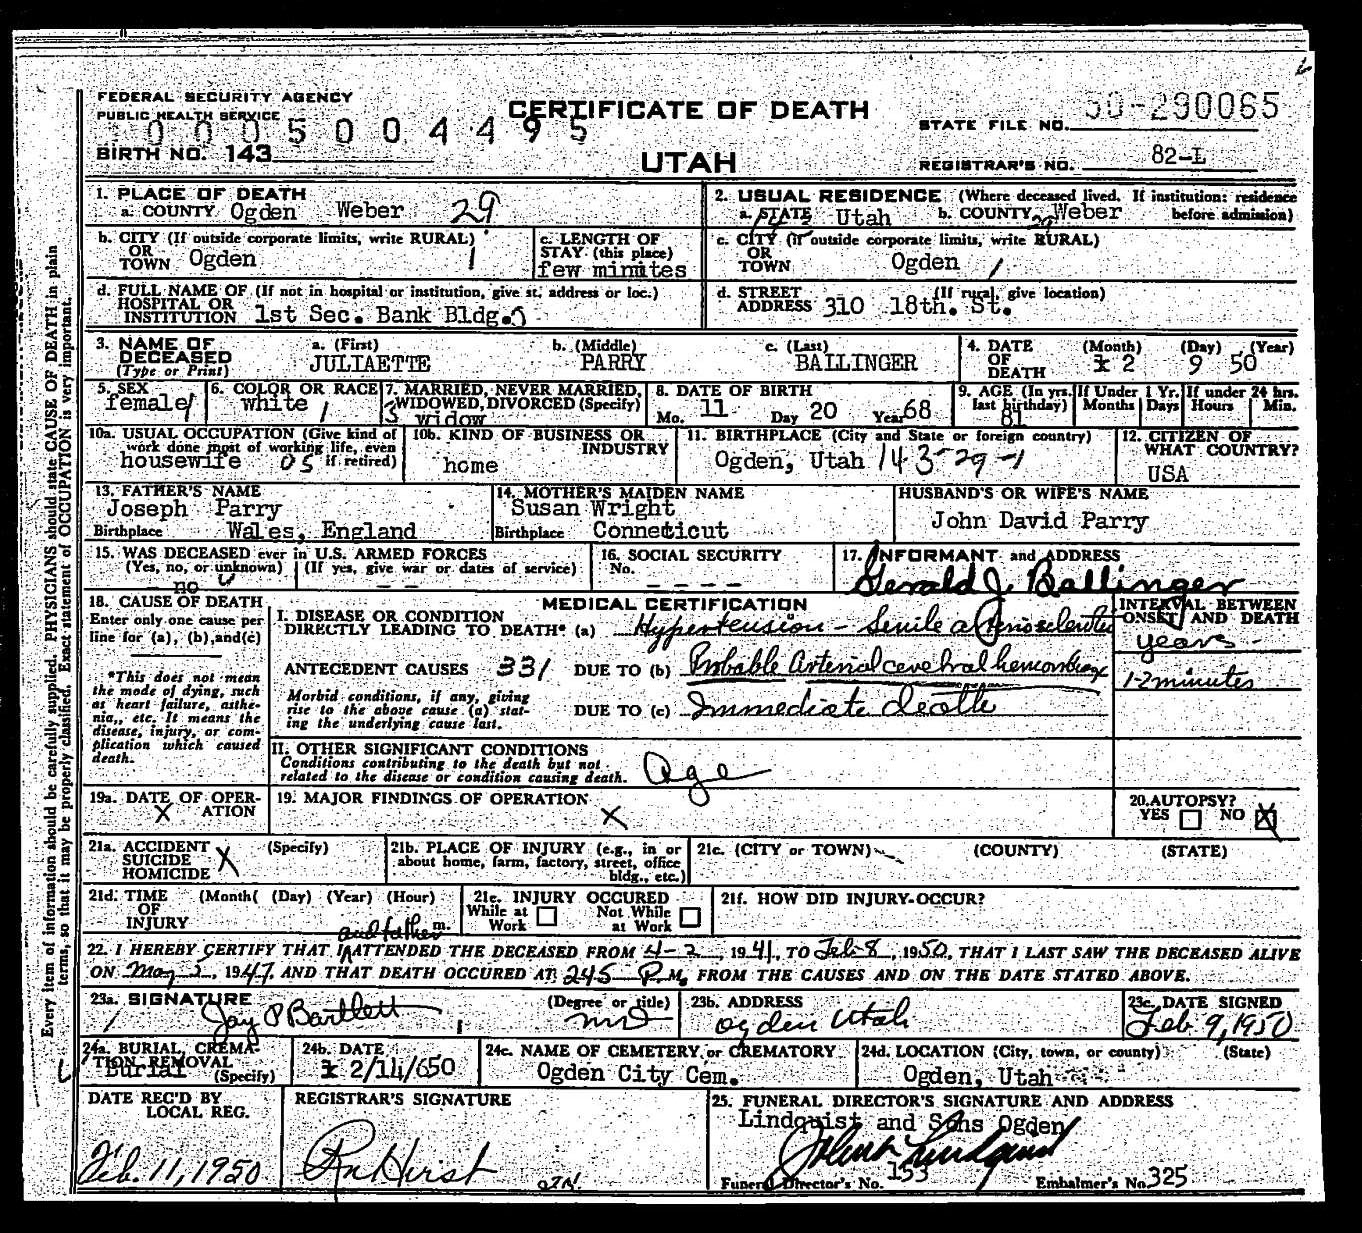 FEDERAL SECURITY AGENCY
PUBLIC HEALTH SERVICE
CERTIFICATE OF DEATH
UTAH
0005004495
BIRTH NO. 143
STATE FILE NO. 50-290065
REGISTRAR'S NO. 82-L
1. PLACE OF DEATH
a. COUNTY Ogden Weber 29
b. CITY (If outside corporate limits, write RURAL) OR TOWN Ogden 1
c. LENGTH OF STAY (this place) few minites
d. FULL NAME OF (If not in hospital or institution, give st. address or loc.) HOSPITAL OR INSTITUTION 1st Sec. Bank Bldg.
2. USUAL RESIDENCE (Where deceased lived. If institution: residence before admission)
a. STATE Utah b. COUNTY Weber
c. CITY (If outside corporate limits, write RURAL) OR TOWN Ogden 1
d. STREET ADDRESS (If rural, give location) 310 18th. St.
3. NAME OF DECEASED (Type or Print)
a. (First) JULIAETTE
b. (Middle) PARRY
c. (Last) BALLINGER
4. DATE OF DEATH (Month) (Day) (Year) 2 9 50
5. SEX female 1
6. COLOR OR RACE white 1
7. MARRIED, NEVER MARRIED, WIDOWED, DIVORCED (Specify) 3 widow
8. DATE OF BIRTH Mo. 11 Day 20 Year 68
9. AGE (In yrs. last birthday) 81
If Under 1 Yr. Months Days
If under 24 hrs. Hours Min.
10a. USUAL OCCUPATION (Give kind of work done most of working life, even if retired) housewife 05
10b. KIND OF BUSINESS OR INDUSTRY home
11. BIRTHPLACE (City and State or foreign country) Ogden, Utah 143-29-1
12. CITIZEN OF WHAT COUNTRY? USA
13. FATHER'S NAME Joseph Parry
Birthplace Wales, England
14. MOTHER'S MAIDEN NAME Susan Wright
Birthplace Connecticut
HUSBAND'S OR WIFE'S NAME John David Parry
15. WAS DECEASED ever in U.S. ARMED FORCES (Yes, no, or unknown) no
(If yes, give war or dates of service) - -
16. SOCIAL SECURITY No. - - - -
17. INFORMANT and ADDRESS Gerald J Ballinger
18. CAUSE OF DEATH
Enter only one cause per line for (a), (b), and (c)
*This does not mean the mode of dying, such as heart failure, asthenia,, etc. It means the disease, injury, or complication which caused death.
MEDICAL CERTIFICATION
INTERVAL BETWEEN ONSET AND DEATH
I. DISEASE OR CONDITION DIRECTLY LEADING TO DEATH* (a) Hypertension - Senile arteriosclerotic years
ANTECEDENT CAUSES 331 DUE TO (b) Probable Arterial cerebral hemorrhage 1-2 minutes
Morbid conditions, if any, giving rise to the above cause (a) stating the underlying cause last.
DUE TO (c) Immediate death
II. OTHER SIGNIFICANT CONDITIONS
Conditions contributing to the death but not related to the disease or condition causing death. Age
19a. DATE OF OPERATION X
19. MAJOR FINDINGS OF OPERATION X
20. AUTOPSY? YES NO X
21a. ACCIDENT SUICIDE HOMICIDE (Specify) X
21b. PLACE OF INJURY (e.g., in or about home, farm, factory, street, office bldg., etc.)
21c. (CITY or TOWN) (COUNTY) (STATE)
21d. TIME OF INJURY (Month( (Day) (Year) (Hour) m.
21e. INJURY OCCURED While at Work Not While at Work
21f. HOW DID INJURY OCCUR?
and father
22. I HEREBY CERTIFY THAT I ATTENDED THE DECEASED FROM 4-2, 1941, TO Feb-8, 1950, THAT I LAST SAW THE DECEASED ALIVE
ON May 2, 1947, AND THAT DEATH OCCURED AT 245 P.M. FROM THE CAUSES AND ON THE DATE STATED ABOVE.
23a. SIGNATURE Jay P Bartlett (Degree or title) MD
23b. ADDRESS Ogden Utah
23c. DATE SIGNED Feb 9, 1950
24a. BURIAL, CREMATION, REMOVAL (Specify) Burial
24b. DATE 2/14/650
24c. NAME OF CEMETERY or CREMATORY Ogden City Cem.
24d. LOCATION (City, town, or county) (State) Ogden, Utah
DATE REC'D BY LOCAL REG. Feb. 11, 1950
REGISTRAR'S SIGNATURE
25. FUNERAL DIRECTOR'S SIGNATURE AND ADDRESS
Lindquist and Sons Ogden
John A Lindquist
Funeral Director's No. 153 Embalmer's No. 325
Every item of information should be carefully supplied. PHYSICIANS should state CAUSE OF DEATH in plain terms, so that it may be properly classified. Exact statement of OCCUPATION is very important.